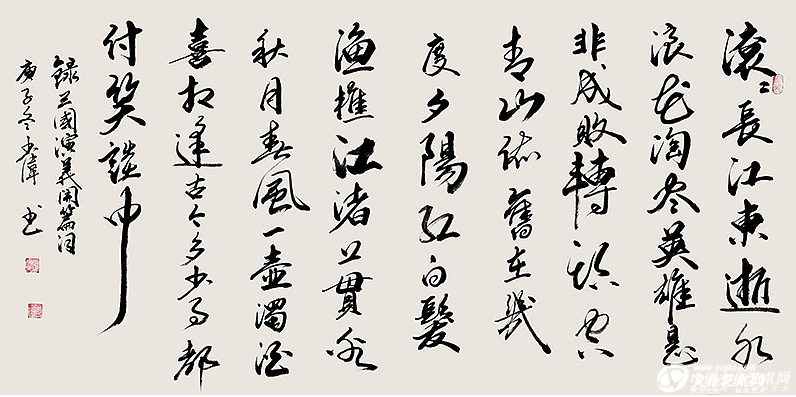 滚〻長江東逝水
浪花淘尽英雄是
非成敗轉头空
青山依舊在幾
度夕陽红白髮
渔樵江渚上貫看
秋月春風一壺濁酒
喜相逢古今多少事都
付笑談中
録三國演義開篇词
庚子冬偉书